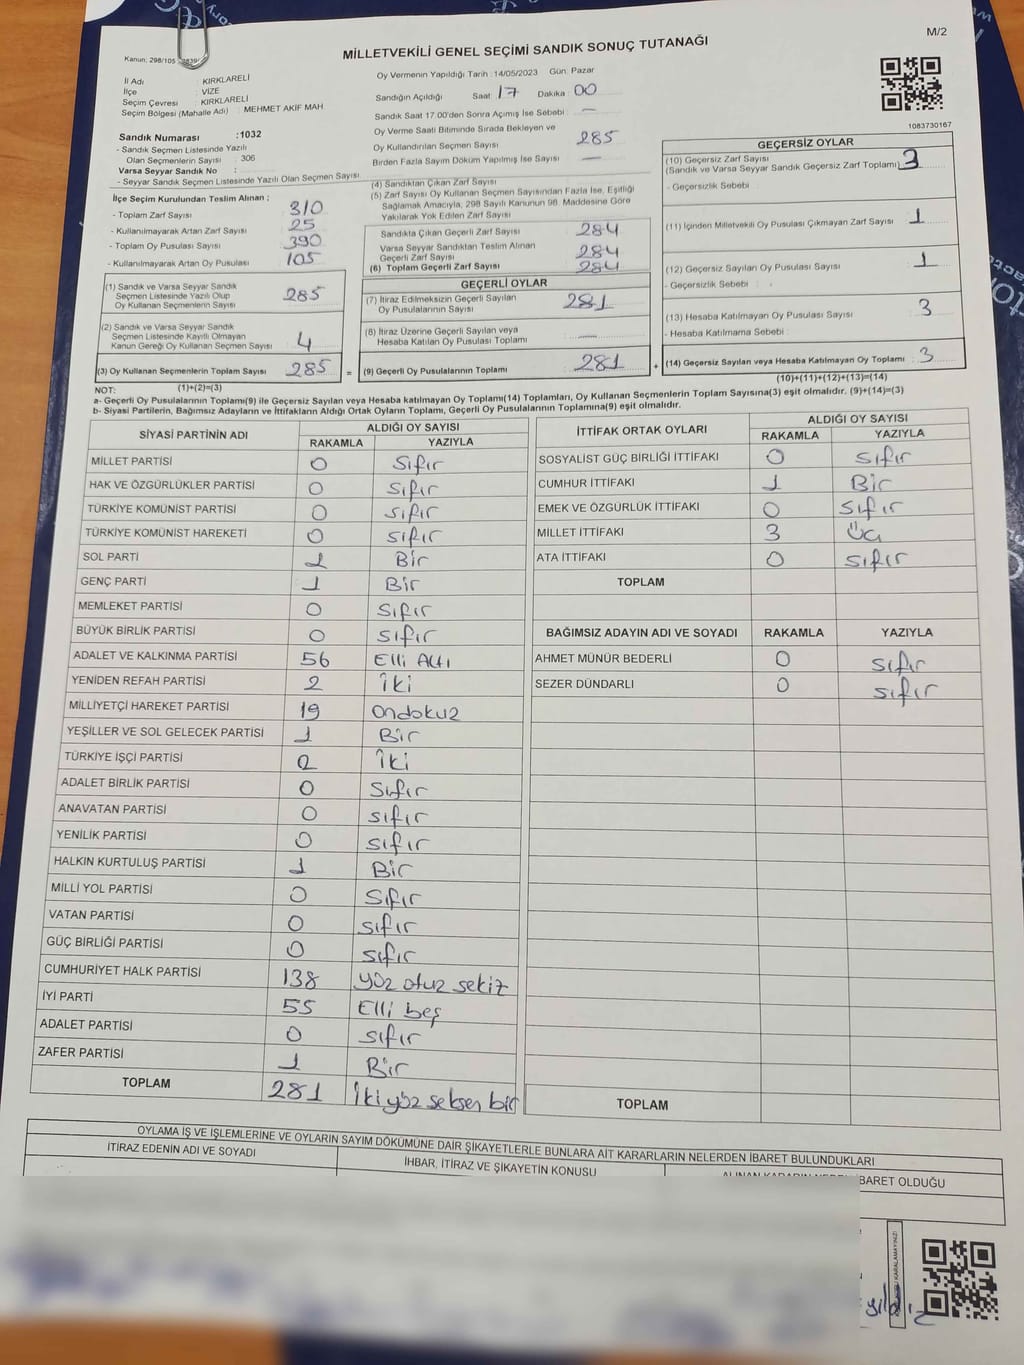 M/2
MİLLETVEKİLİ GENEL SEÇİMİ SANDIK SONUÇ TUTANAĞI
Kanun: 298/105
İl Adı : KIRKLARELİ
İlçe : VİZE
Seçim Çevresi : KIRKLARELİ
Seçim Bölgesi (Mahalle Adı) : MEHMET AKİF MAH
Oy Vermenin Yapıldığı Tarih : 14/05/2023 Gün: Pazar
Sandığın Açıldığı Saat 17 Dakika : 00
Sandık Saat 17.00'den Sonra Açımış İse Sebebi : —
Oy Verme Saati Bitiminde Sırada Bekleyen ve
Oy Kullandırılan Seçmen Sayısı : 285
Birden Fazla Sayım Döküm Yapılmış İse Sayısı : —
1083730167
Sandık Numarası :1032
- Sandık Seçmen Listesinde Yazılı
Olan Seçmenlerin Sayısı : 306
Varsa Seyyar Sandık No :
- Seyyar Sandık Seçmen Listesinde Yazılı Olan Seçmen Sayısı
İlçe Seçim Kurulundan Teslim Alınan ;
- Toplam Zarf Sayısı : 310
- Kullanılmayarak Artan Zarf Sayısı : 25
- Toplam Oy Pusulası Sayısı : 390
- Kullanılmayarak Artan Oy Pusulası : 105
(1) Sandık ve Varsa Seyyar Sandık
Seçmen Listesinde Yazılı Olup
Oy Kullanan Seçmenlerin Sayısı : 285
(2) Sandık ve Varsa Seyyar Sandık
Seçmen Listesinde Kayıtlı Olmayan
Kanun Gereği Oy Kullanan Seçmen Sayısı : 4
(3) Oy Kullanan Seçmenlerin Toplam Sayısı : 285 =
(4) Sandıktan Çıkan Zarf Sayısı
(5) Zarf Sayısı Oy Kullanan Seçmen Sayısından Fazla İse, Eşitliği
Sağlamak Amacıyla, 298 Sayılı Kanunun 98. Maddesine Göre
Yakılarak Yok Edilen Zarf Sayısı
Sandıkta Çıkan Geçerli Zarf Sayısı : 284
Varsa Seyyar Sandıktan Teslim Alınan
Geçerli Zarf Sayısı : 284
(6) Toplam Geçerli Zarf Sayısı : 284
GEÇERLİ OYLAR
(7) İtiraz Edilmeksizin Geçerli Sayılan
Oy Pusulalarının Sayısı : 281
(8) İtiraz Üzerine Geçerli Sayılan veya
Hesaba Katılan Oy Pusulası Toplamı : —
(9) Geçerli Oy Pusulalarının Toplamı : 281 +
GEÇERSİZ OYLAR
(10) Geçersiz Zarf Sayısı
(Sandık ve Varsa Seyyar Sandık Geçersiz Zarf Toplamı) : 3
- Geçersizlik Sebebi :
(11) İçinden Milletvekili Oy Pusulası Çıkmayan Zarf Sayısı : 1
(12) Geçersiz Sayılan Oy Pusulası Sayısı : 1
- Geçersizlik Sebebi :
(13) Hesaba Katılmayan Oy Pusulası Sayısı : 3
- Hesaba Katılmama Sebebi :
(14) Geçersiz Sayılan veya Hesaba Katılmayan Oy Toplamı : 3
NOT: (1)+(2)=(3) (10)+(11)+(12)+(13)=(14)
a- Geçerli Oy Pusulalarının Toplamı(9) ile Geçersiz Sayılan veya Hesaba katılmayan Oy Toplamı(14) Toplamları, Oy Kullanan Seçmenlerin Toplam Sayısına(3) eşit olmalıdır. (9)+(14)=(3)
b- Siyasi Partilerin, Bağımsız Adayların ve İttifakların Aldığı Ortak Oyların Toplamı, Geçerli Oy Pusulalarının Toplamına(9) eşit olmalıdır.
SİYASİ PARTİNİN ADI ALDIĞI OY SAYISI
RAKAMLA YAZIYLA
MİLLET PARTİSİ 0 Sıfır
HAK VE ÖZGÜRLÜKLER PARTİSİ 0 sıfır
TÜRKİYE KOMÜNİST PARTİSİ 0 sıfır
TÜRKİYE KOMÜNİST HAREKETİ 0 sıfır
SOL PARTİ 1 Bir
GENÇ PARTİ 1 Bir
MEMLEKET PARTİSİ 0 Sıfır
BÜYÜK BİRLİK PARTİSİ 0 sıfır
ADALET VE KALKINMA PARTİSİ 56 Elli Altı
YENİDEN REFAH PARTİSİ 2 İki
MİLLİYETÇİ HAREKET PARTİSİ 19 Ondokuz
YEŞİLLER VE SOL GELECEK PARTİSİ 1 Bir
TÜRKİYE İŞÇİ PARTİSİ 2 İki
ADALET BİRLİK PARTİSİ 0 Sıfır
ANAVATAN PARTİSİ 0 sıfır
YENİLİK PARTİSİ 0 sıfır
HALKIN KURTULUŞ PARTİSİ 1 Bir
MİLLİ YOL PARTİSİ 0 Sıfır
VATAN PARTİSİ 0 sıfır
GÜÇ BİRLİĞİ PARTİSİ 0 sıfır
CUMHURİYET HALK PARTİSİ 138 yüz otuz sekiz
İYİ PARTİ 55 Elli beş
ADALET PARTİSİ 0 sıfır
ZAFER PARTİSİ 1 Bir
TOPLAM 281 İki yüz seksen bir
İTTİFAK ORTAK OYLARI ALDIĞI OY SAYISI
RAKAMLA YAZIYLA
SOSYALİST GÜÇ BİRLİĞİ İTTİFAKI 0 sıfır
CUMHUR İTTİFAKI 1 Bir
EMEK VE ÖZGÜRLÜK İTTİFAKI 0 sıfır
MİLLET İTTİFAKI 3 Üç
ATA İTTİFAKI 0 sıfır
TOPLAM
BAĞIMSIZ ADAYIN ADI VE SOYADI RAKAMLA YAZIYLA
AHMET MÜNÜR BEDERLİ 0 sıfır
SEZER DÜNDARLI 0 sıfır
TOPLAM
OYLAMA İŞ VE İŞLEMLERİNE VE OYLARIN SAYIM DÖKÜMÜNE DAİR ŞİKAYETLERLE BUNLARA AİT KARARLARIN NELERDEN İBARET BULUNDUKLARI
İTİRAZ EDENİN ADI VE SOYADI İHBAR, İTİRAZ VE ŞİKAYETİN KONUSU İBARET OLDUĞU